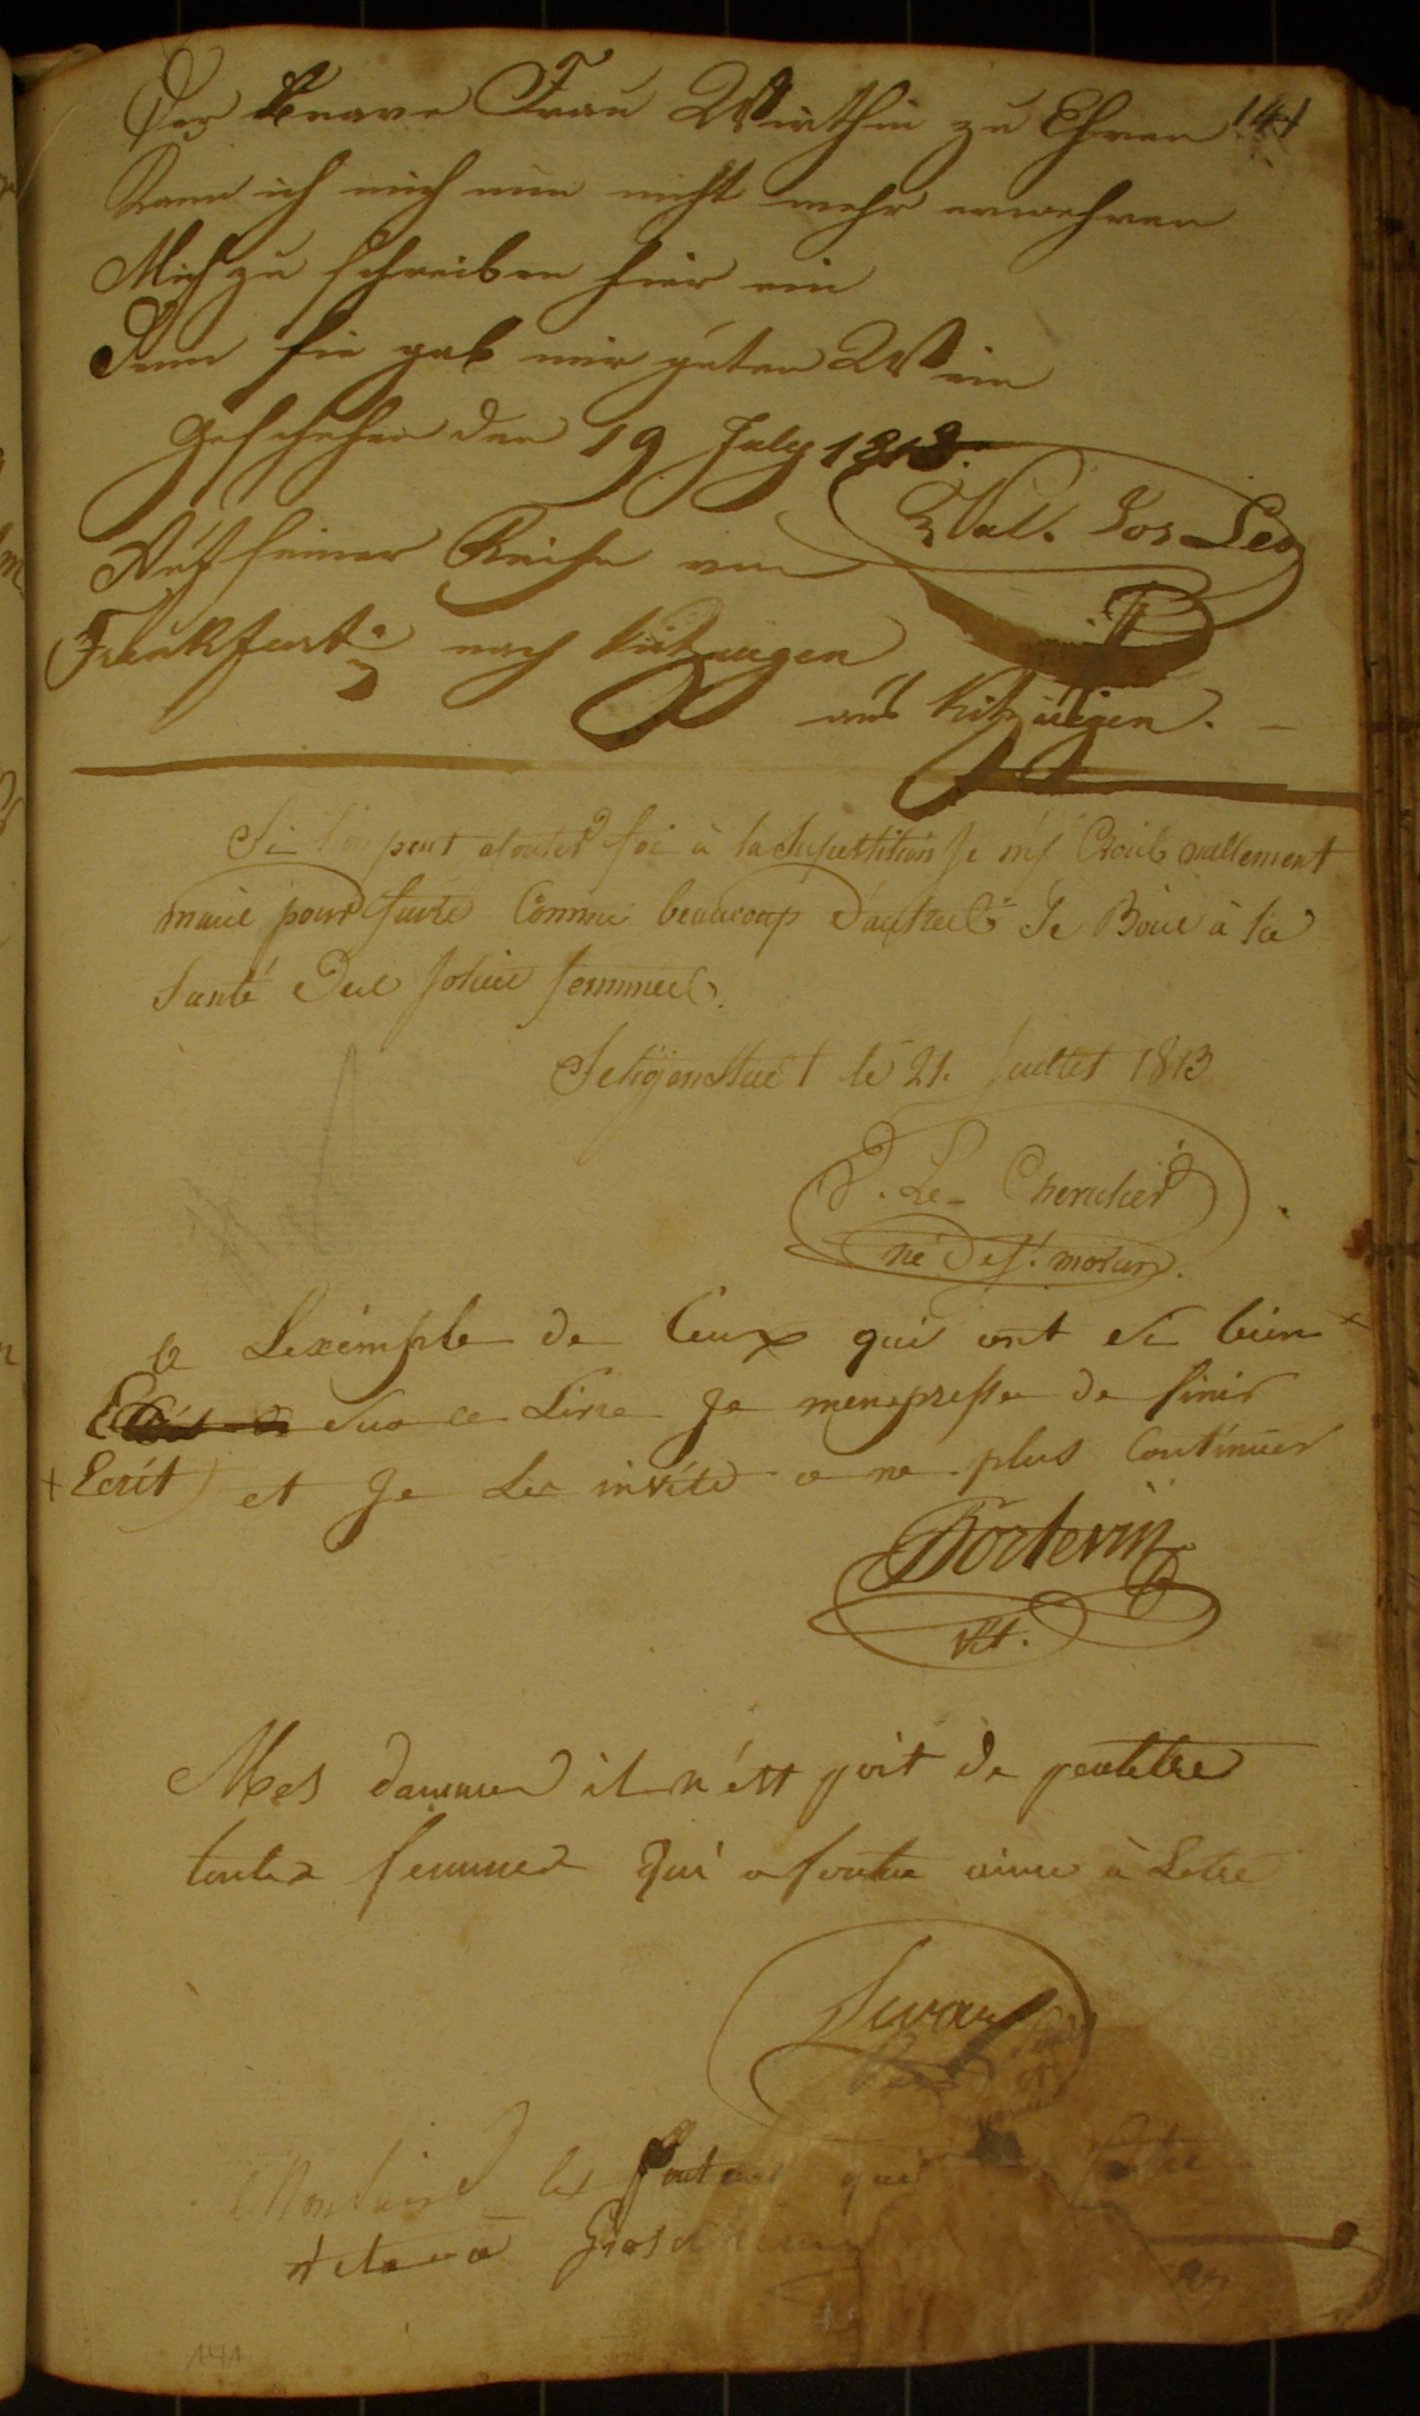 141
Der brave Frau Wirthin zu Ehren
Kann ich mich nun nicht mehr erwehren
Mich zu schreiben hier ein
Denn sie gab mir guten Wein
Geschehen den 19 July 1813.
Val. Jos Leo
Auf seiner Reise von
Frankfurt nach Kitzingen
aus Kitzingen.
Si l'on peut ajouter foi à la Supertition Je n'y Crois nullement
mais pour suivre Comme beaucoup d'autres Je Bois à la
Santé Des Jolies femmes.
Seligenstad t le 21. Juillet 1813
Le Cherchier
né de St. moran.
a Lexemple de Ceux qui ont si bien +
sur ce Livre Je menpresse de finir
+ Ecrit) et Je Les invite a ne plus Continuer
Boitevin
Mes dammes il n'est poit de peutetre
toutes femmes qui a foutre aime à Letre
les
que